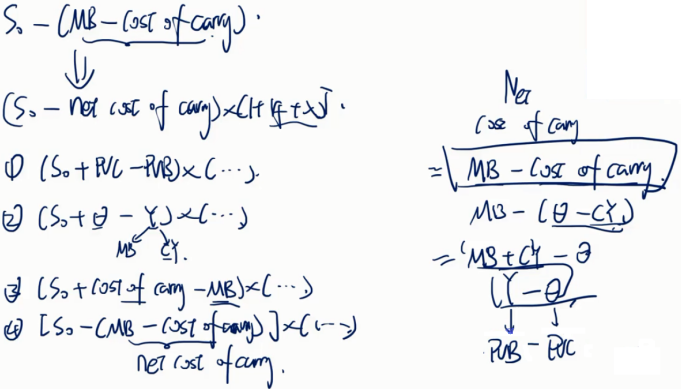 S₀ - (MB - Cost of carry).
⇓
(S₀ - net cost of carry) × (1+rf+x)ᵀ.
① (S₀ + PVC - PVB) × (...).
② (S₀ + θ - Y) × (...)
MB CY.
③ (S₀ + Cost of carry - MB) × (...)
④ [S₀ - (MB - Cost of carry)] × (...)
net cost of carry.
Net
Cost of carry
= MB - Cost of carry.
MB - (θ - CY)
= MB + CY - θ
(Y - θ)
PVB - PVC